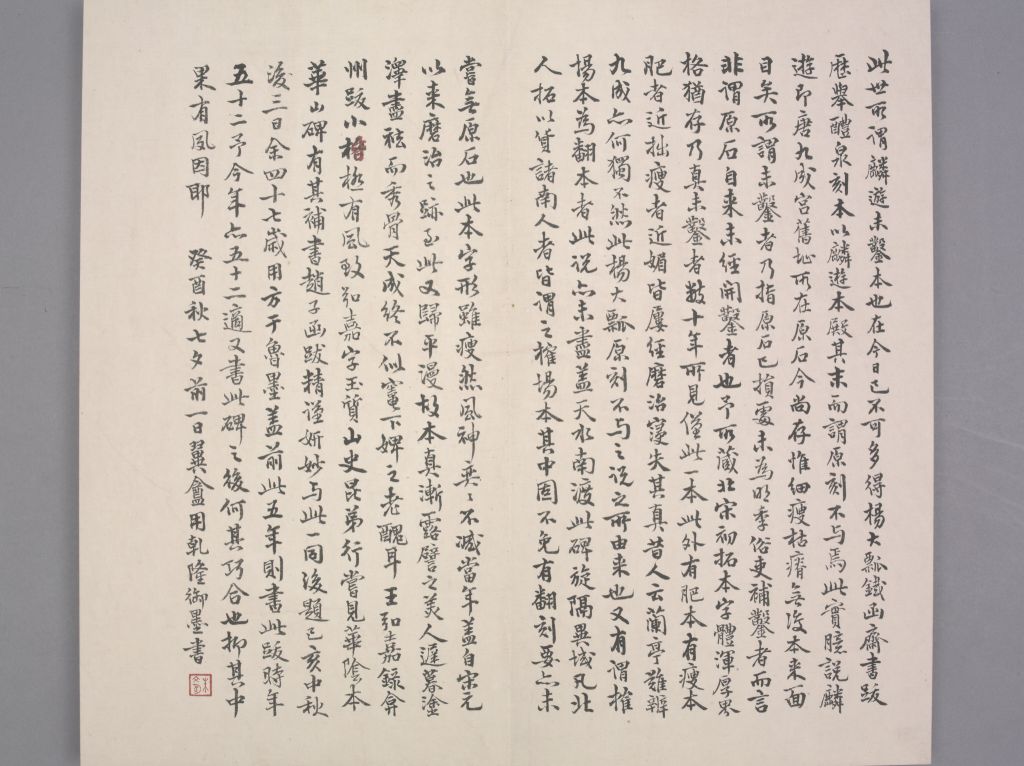 此世所謂麟遊未鑿本也在今日已不可多得楊大瓢鐵函齋書跋
歷舉醴泉刻本以麟遊本殿其末而謂原刻不与焉此實臆說麟
遊即唐九成宮舊址所在原石今尚存惟細瘦枯瘠無復本來面
目矣所謂未鑿者乃指原石已損處未為明季俗吏補鑿者而言
非謂原石自來未經開鑿者也予所藏北宋初拓本字體渾厚界
格猶存乃真未鑿者數十年所見僅此一本此外有肥本有瘦本
肥者近拙瘦者近媚皆屢經磨治寖失其真昔人云蘭亭難辨
九成亦何獨不然此楊大瓢原刻不与之說之所由来也又有謂榷
場本為翻本者此說亦未盡蓋天水南渡此碑旋隔異域凡北
人拓以貨諸南人者皆謂之榷場本其中固不免有翻刻要亦未
嘗無原石也此本字形雖瘦然風神奕々不減當年蓋自宋元
以来磨治之跡至此又歸平漫故本真漸露譬之美人遲暮塗
澤盡祛而秀骨天成終不似竈下婢之老醜耳王弘嘉錄弇
州跋小楷極有風致弘嘉字玉質山史昆弟行嘗見華陰本
華山碑有其補書趙子函跋精謹妍妙与此一同後題己亥中秋
後三日余四十七歲用方于魯墨蓋前此五年則書此跋時年
五十二予今年亦五十二適又書此碑之後何其巧合也抑其中
果有夙因耶 癸酉秋七夕前一日翼盦用乾隆御墨書